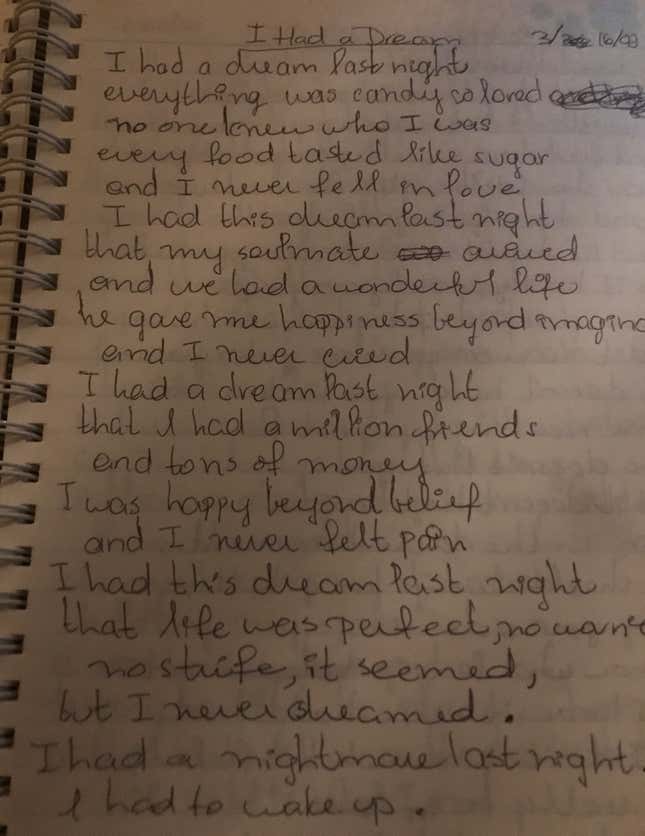 I Had a Dream 3/ 16/03
I had a dream last night
everything was candy colored
no one knew who I was
every food tasted like sugar
and I never fell in love
I had this dream last night
that my soulmate
and we had a wonderful life
he gave me happiness beyond imagin
and I never cried
I had a dream last night
that I had a million friends
and tons of money
I was happy beyond belief
and I never felt pain
I had this dream last night
that life was perfect, no
no strife, it seemed,
but I never dreamed.
I had a nightmare last night.
I had to wake up.